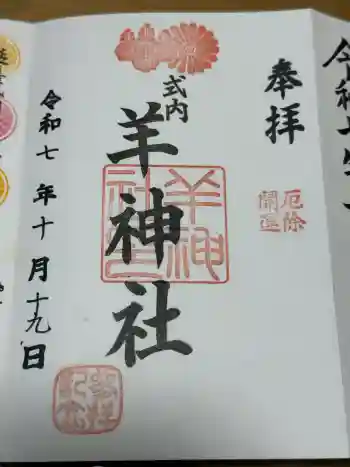 奉拝
厄除
開運
式内
羊神社
羊神社
令和七年十月十九日